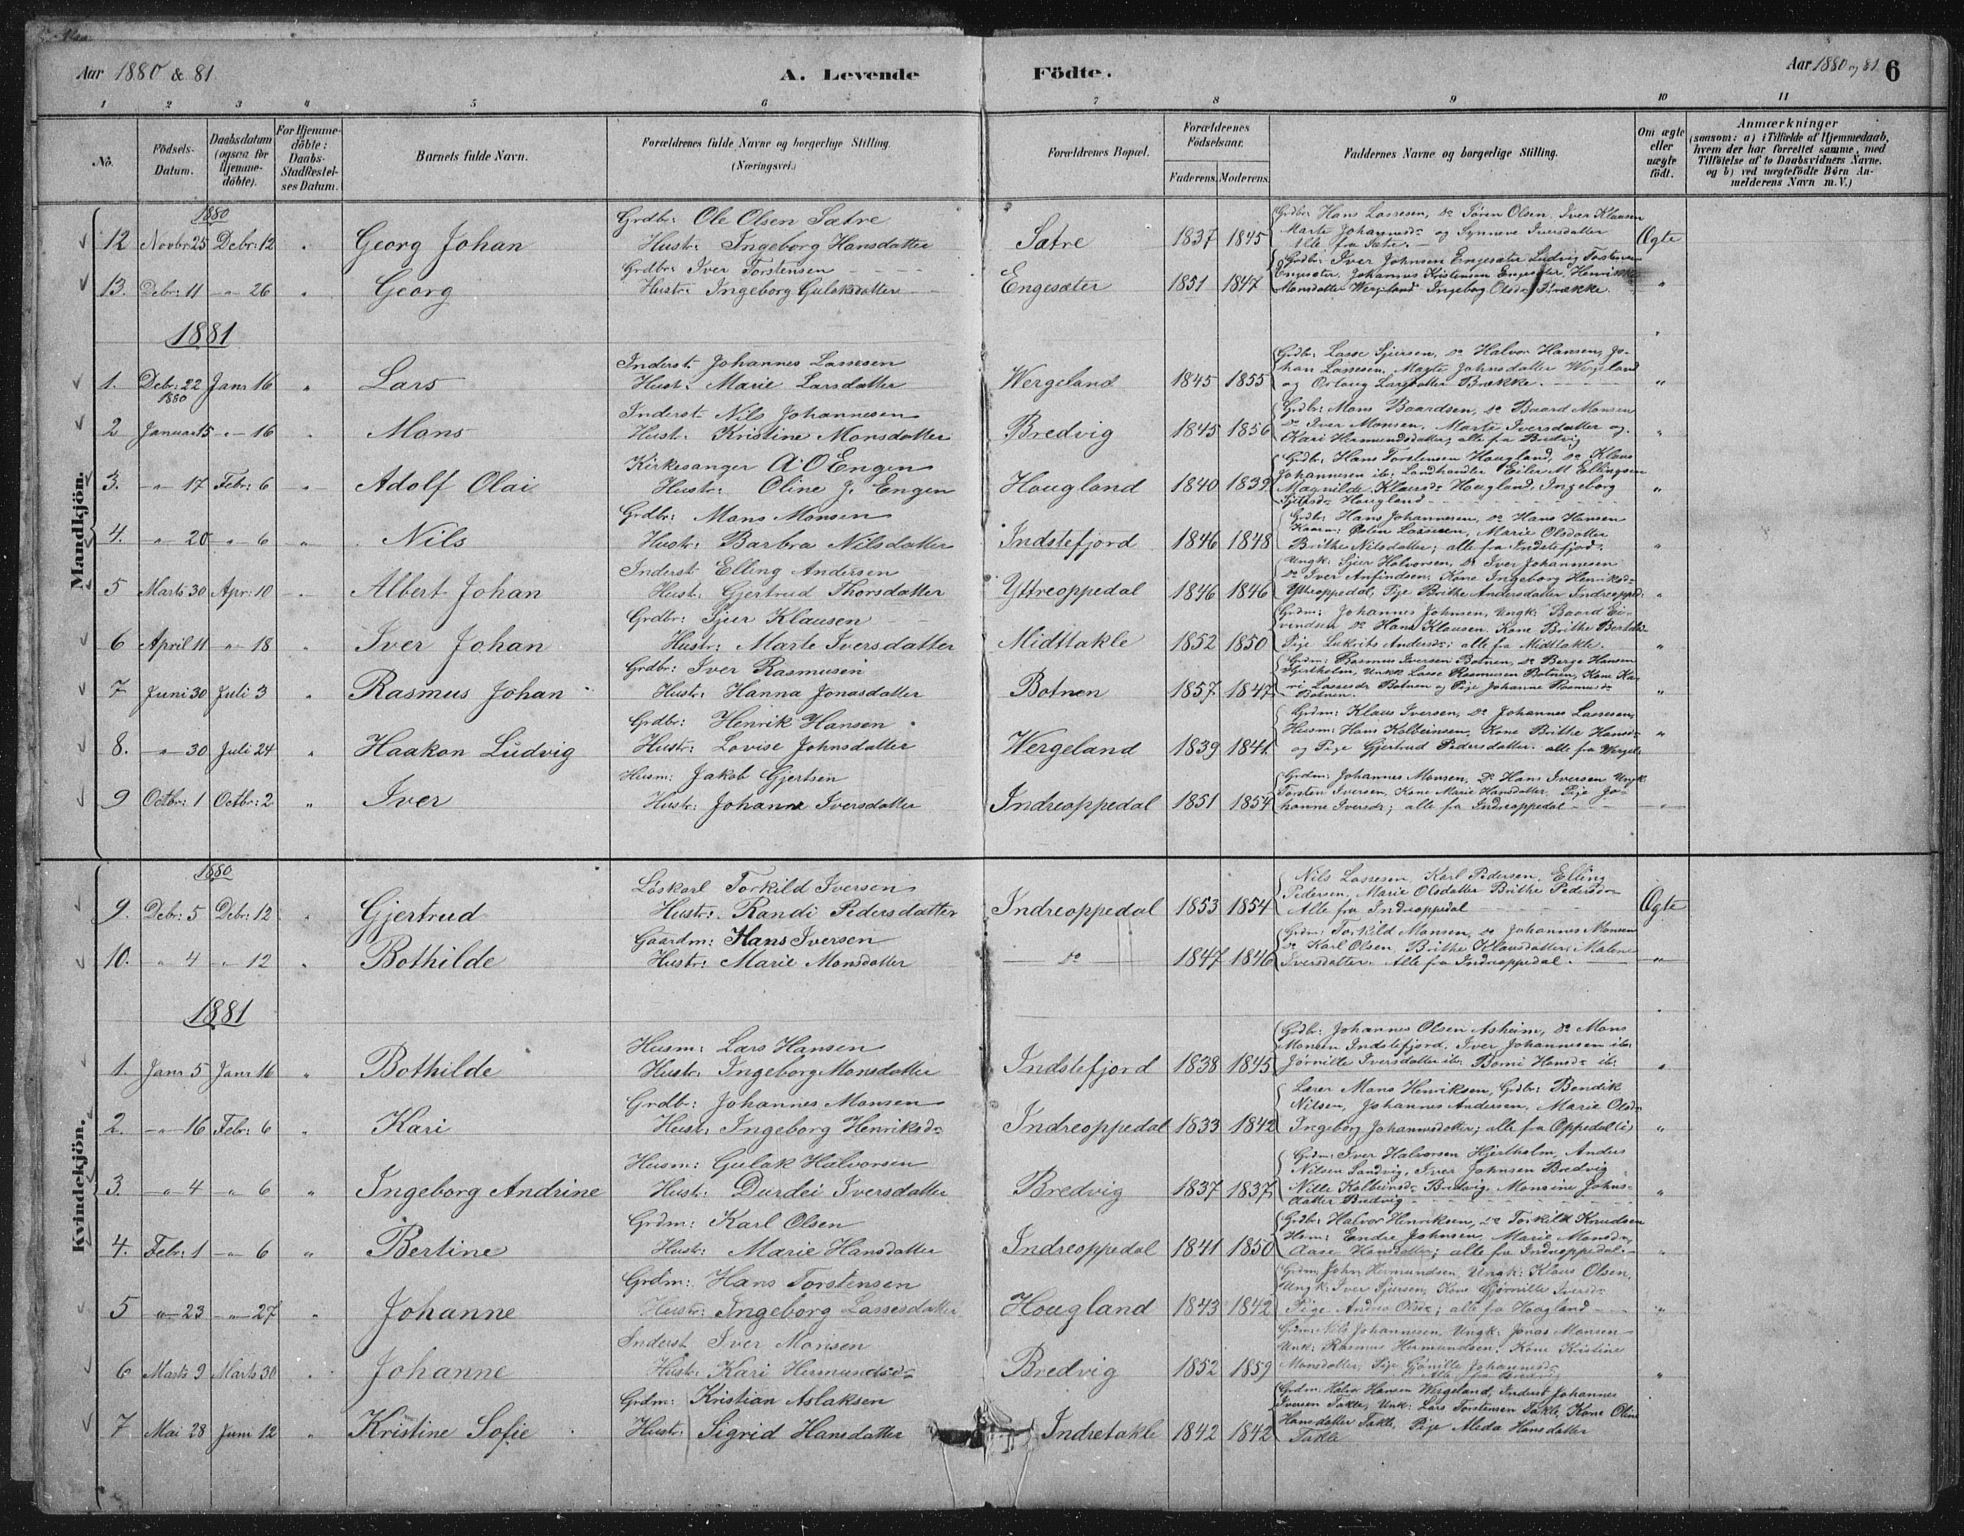 Aar 1880 & 81. A. Levende Födte. Aar 1880 og 81. 6
1 2 3 4 5 6 7 8 9 10 11
No. Födsels-Datum. Daabsdatum (ogsaa for Hjemmedöbte). For Hjemmedöbte: Daabs-Stadfæstelses Datum. Barnets fulde Navn. Forældrenes fulde Navne og borgerlige Stilling. (Næringsvei.) Forældrenes Bopæl. Forældrenes Födselsaar. Faderens. Moderens. Faddernes Navne og borgerlige Stilling. Om ægte eller uægte födt. Anmærkninger (saasom: a) i Tilfælde af Hjemmedaab, hvem der har forrettet samme, med Tilföielse af to Daabsvidners Navne, og b) ved uægtefödte Börn Anmelderens Navn m. V.)
Mandkjön.
1880
12 Novbr: 25 Debr: 12 " Georg Johan Grdbr: Ole Olsen Sætre Hustr: Ingeborg Hansdatter Sætre 1837 1845 Grdbr: Hans Lassesen, Do Sören Olsen, Iver Klausen Marte Johannesd: og Synneve Iversdatter Alle fra Sætre. Ægte
13. Debr: 11 " 26 " Georg Grdbr: Iver Torstensen Hustr: Ingeborg Gulaksdatter Engesæter 1851 1847 Grdbr: Iver Johnsen Engesæter Ludvig Torstensen Engesæter, Johannes Kristensen Engesæter, Monsdatter Wergeland Ingebor Olsd: Brække. "
1881
1. Debr: 22 1880 Janr 16 " Lars Inderst Johannes Lassesen Hust: Marie Larsdatter Wergeland. 1845 1855 Grdbr: Lasse Sjursen, Do Halvor Hansen, Johan Lassesen, Marte Johnsdatter Wergeland og Larsdatter Brække. "
2 Januar 15 " 16 " Mons Inderst Nils Johannesen Hust: Kristine Monsdatter Bredvig 1845 1856 Grdbr: Mons Baardsen, Do Baard Monsen Do Iver Monsen, Marte Iversdatter og Kari Hermundsdatter; alle fra Bredvig "
3. " 17 Febr: 6 " Adolf Olai Kirkesanger A O Engen Hustr: Oline J. Engen Hougland 1840 1839 Grdbr: Hans Torstensen Hougland, Do Klaus Johannesen ib: Landhandler Eiler M Ellingsen Magnilde Klausd: Hougland, Ingeborg Hougland "
4. " 20 " 6 " Nils Grdbr: Mons Monsen Hustr: Barbra Nilsdatter Indstefjord 1846 1848 Grdbr: Hans Johannesen, Do Hans Hansen Lassesen, Marie Olsdatter Brithe Nilsdatter; alle fra Indstefjord. "
5 Marts 30 Apr: 10 " Albert Johan Inderst Elling Andersen Hust: Gjertrud Thorsdatter Yttreoppedal 1846 1846 Ungk: Sjur Halvorsen, Do Iver Johannesen Do Iver Anfindsen, Kone Ingeborg Henriksd: Yttreoppedal, Pige Brithe Andersdatter Indreopped: "
6 April 11 " 18 " Iver Johan Grdbr: Sjur Klausen Hustr: Marte Iversdatter Midttakle 1852 1850 Grdm: Johannes Johnsen, Ungk: Baard Eivendsen Do Hans Klausen, Kone Brithe Pige Andersd: alle fra Midttakle. "
7 Juni 30 Juli 3 " Rasmus Johan Grdbr: Iver Rasmusen Hust: Hanna Jonasdatter Botnen 1857 1847 Grdm: Rasmus Iversen Botnen, Do Berge Hansen Hjertholm, Unkk Lasse Rasmusen Botnen, Kone Kari Lassesdr Botnen og Pige Johanne Rasmusd: Botnen. "
8. " 30 Juli 24 " Haakon Ludvig Grdbr: Henrik Hansen Hustr: Lovise Johnsdatter Wergeland 1839 1841 Grdm: Klaus Iversen, Do Johannes Lassesen, Husm: Hans Kolbeinsen, Kone Brithe Hansd: og Pige Gjertrud Pedersdatter. alle fra Wergel: "
9 Octbr: 1 Octbr: 2 " Iver Husm: Jakob Gjertsen Hustr: Johanne Iversdatter Indreoppedal 1851 1854 Grdm: Johannes Monsen, Do Hans Iversen Ungk Torsten Iversen, Kone Marie Hansdatter, Pige Johanne Iversdr; alle fra Indreoppedal "
Kvindekjön.
1880
9. Debr: 5 Debr: 12 " Gjertrud Löskarl Torkild Iversen Hustr: Randi Pedersdatter Indreoppedal 1853 1854 Nils Lassesen, Karl Pedersen, Elling Pedersen, Marie Olsdatter Brithe Pedersd: Alle fra Indreoppedal Ægte
10. " 4 " 12 " Bothilde Gaardm: Hans Iversen Hustr: Marie Monsdatter Do 1847 1846 Grdm: Torkild Monsen, Do Johannes Monsen Do Karl Olsen, Brithe Klausdatter, Malene Iversdatter. Alle fra Indreoppedal. "
1881
1. Janr 5 Janr 16 " Bothilde Husm: Lars Hansen Hustr: Ingeborg Monsdatter Indstefjord 1838 1845 Grdbr: Johannes Olsen Asheim, Do Mons Monsen Indstefjord, Iver Johannesen ib: Jörnilte Iversdatter ib: Borni Hansd: ib: "
2. " 16 Febr: 6 " Kari Grdbr: Johannes Monsen Hust: Ingeborg Henriksd: Indreoppedal 1833 1842 Lærer Mons Henriksen, Grdbr: Bendik Nilsen, Johannes Andersen, Marie Olsd: Ingeborg Johannesdatter; alle fra Oppedal (i) "
3. " 4 " 6 " Ingeborg Andrine Husm: Gulak Halvorsen Hust: Durdei Iversdatter Bredvig 1837 1837 Grdm: Iver Halvorsen Hjertholm, Anders Nilsen Sandvig, Iver Johnsen Bredvig Nille Kolbeinsd: Bredvig, Monsine Johnsdatter Bredvig "
4. Febr: 1 " 6 " Bertine Grdm: Karl Olsen Hust: Marie Hansdatter Indreoppedal 1841 1850 Grdbr: Halvor Henriksen, Do Torkild Knudsen Hsm: Endre Johnsen, Marie Monsdr, Aase Hansdatter; alle fra Indreoppedal. "
5 " 23 " 27 " Johanne Grdm: Hans Torstensen Hustr: Ingeborg Lassesdatter Hougland 1843 1842 Grdm: John Hermundsen, Ungk: Klaus Olsen, Ungk: Iver Sjursen, Kone Gjörnille Iversd: Pige Andrea Olsdr; alle fra Hougland "
6 Marts 9 Marts 30 " Johanne Inderst Iver Monsen Hust: Kari Hermundsd: Bredvig 1852 1859 Grdm: Nils Johannesen, Ungk: Jonas Monsen Unk: Rasmus Hermundsen, Kone Kristine Monsdatter, Pige Johannesd: Alle fra Bredvig "
7 Mai 28 Juni 12 " Kristine Sofie Grdm: Kristian Aslaksen Hustr: Sigrid Hansdatter Indretakle 1842 1842 Grdm: Halvor Hansen Wergeland, Inderst Johannes Iversen Takle, Unk: Lars Torstensen Takle, Kone Oline Hansdatter Takle, Pige Alida Hansdatter Takle